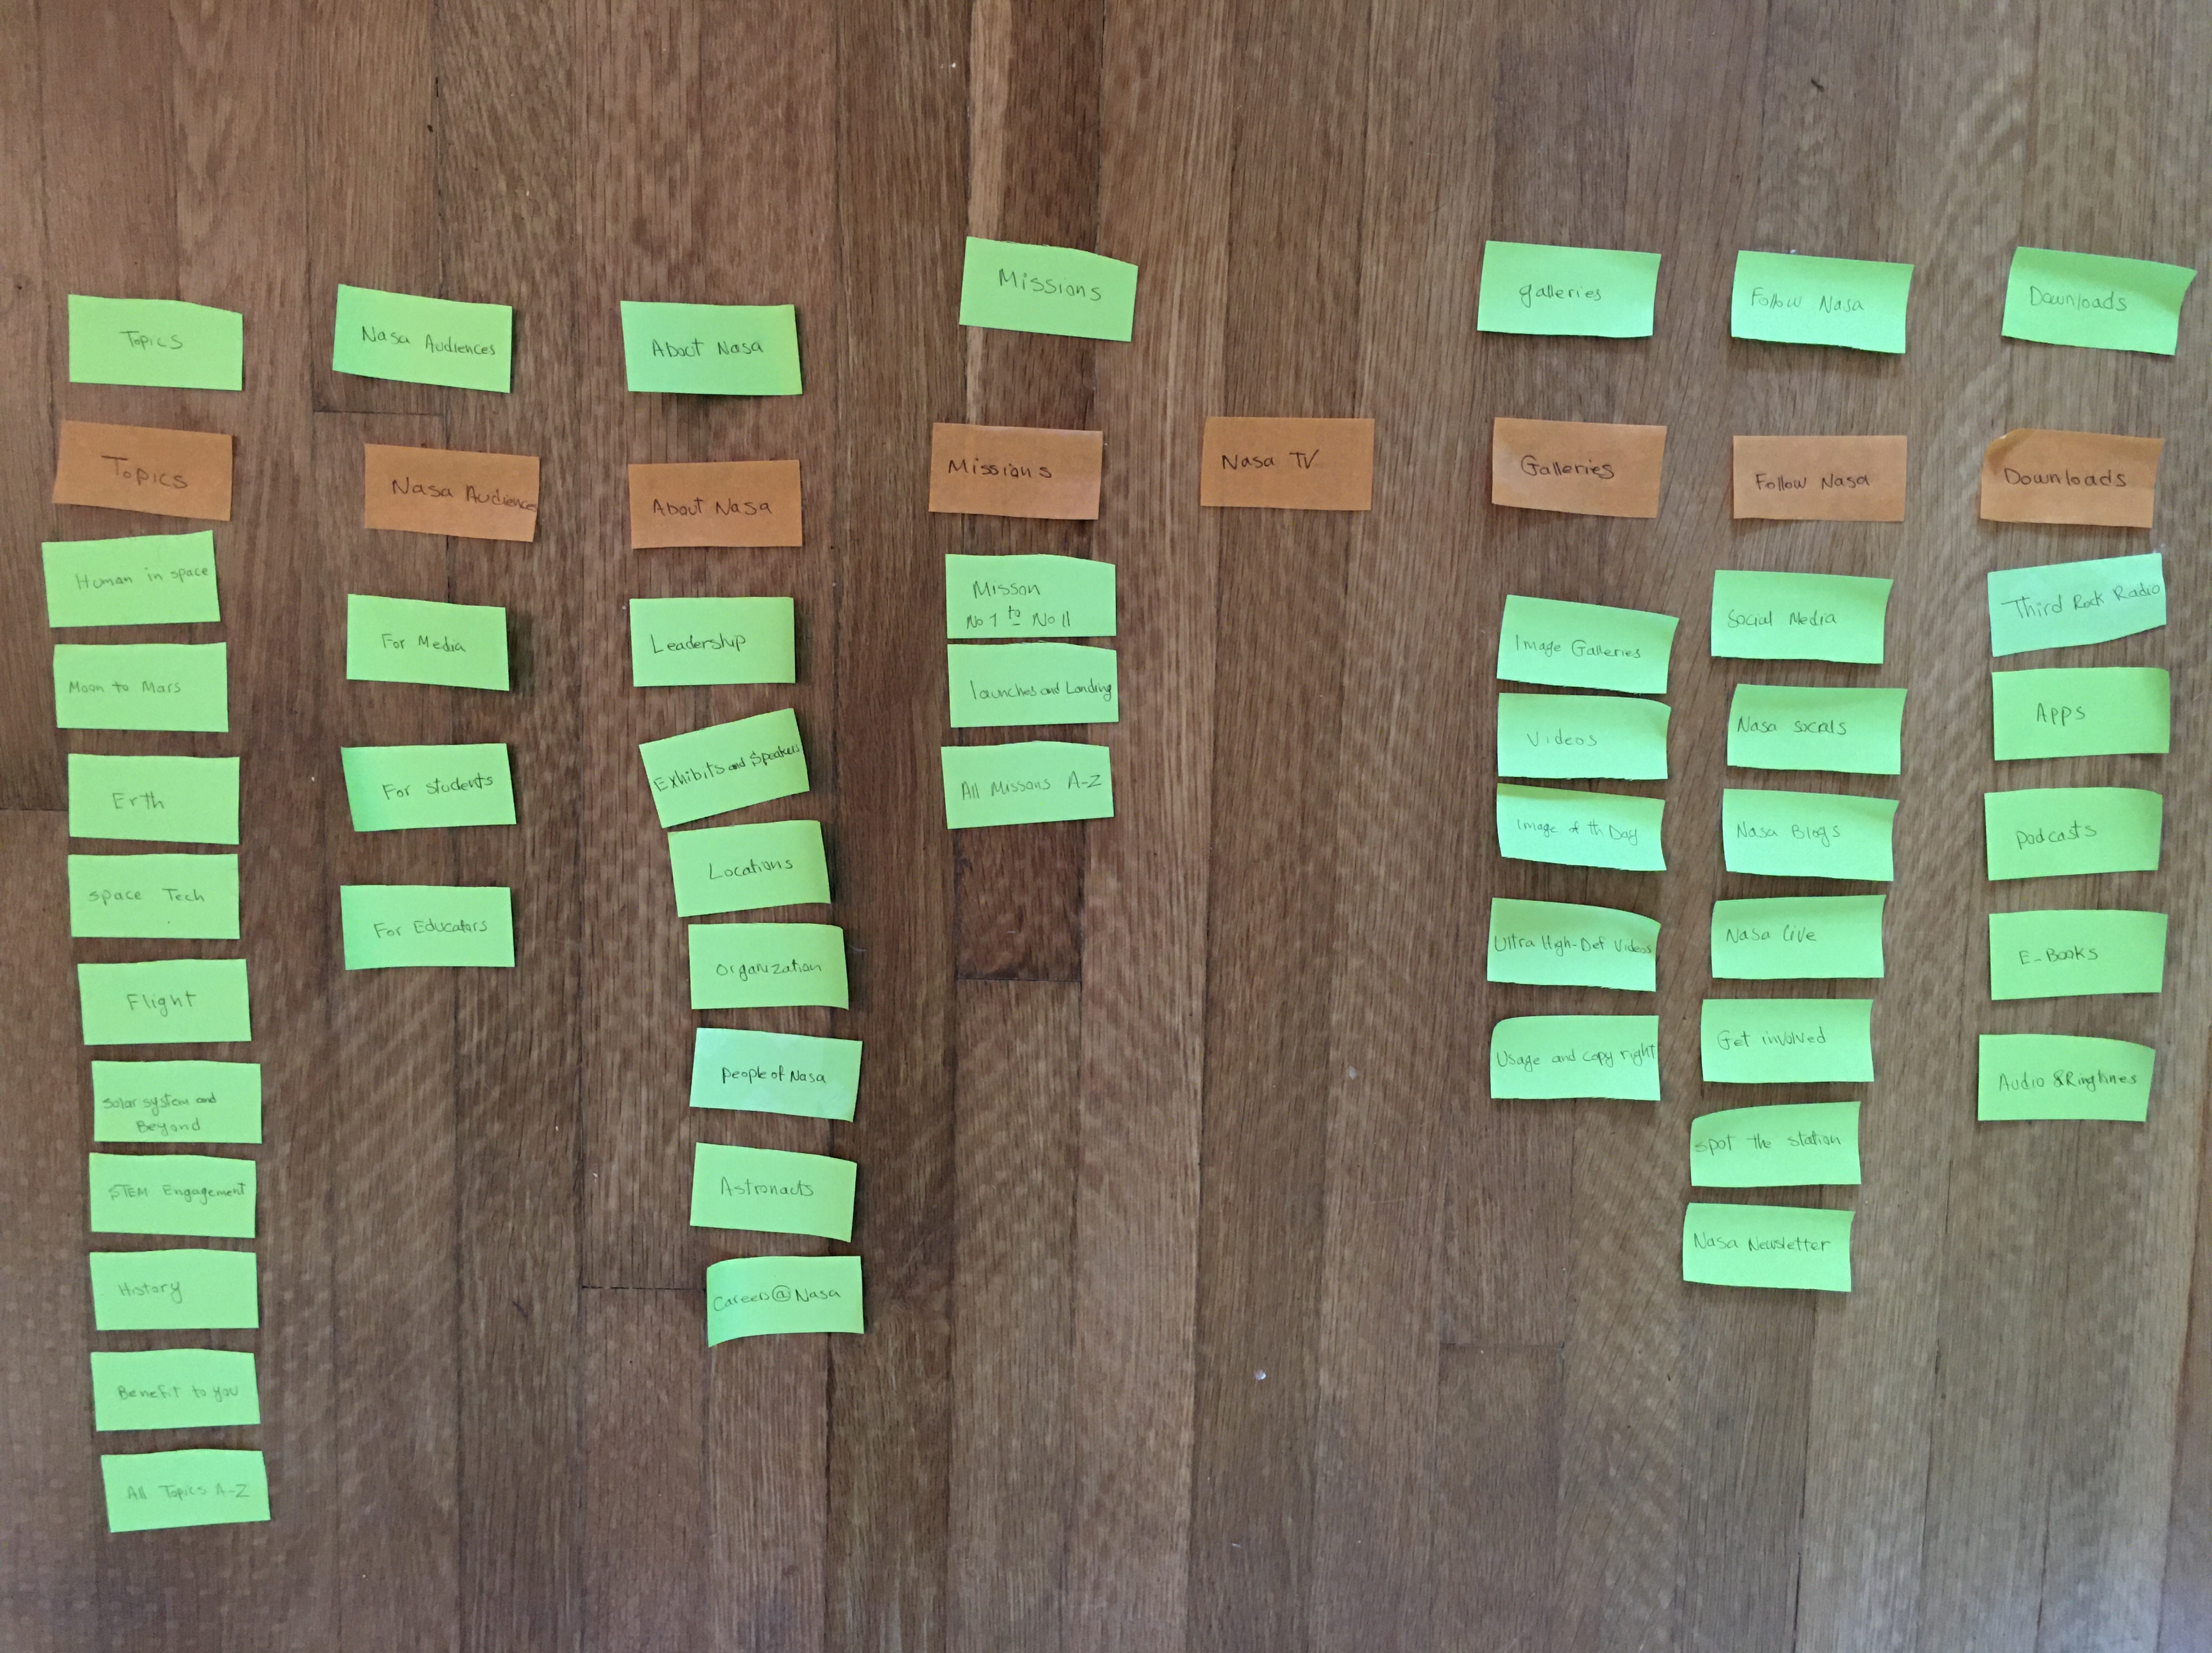 Topics
Topics
Human in space
Moon to Mars
Erth
Space Tech
Flight
Solar system and
Beyond
STEM Engagement
History
Benefit to you
All Topics A-Z
Nasa Audiences
Nasa Audience
For Media
For Students
For Educators
About Nasa
About Nasa
Leadership
Exhibits and Speakers
Locations
Organization
People of Nasa
Astronacts
Careers@Nasa
Missions
Missions
Misson
No 1 to No 11
launches and Landing
All Missons A-Z
Nasa TV
galleries
Galleries
Image Galleries
Videos
Image of th Day
Ultra High-Def Videos
Usage and copy right
Follow Nasa
Follow Nasa
Social Media
Nasa Socials
Nasa Blogs
Nasa Live
Get involved
Spot the station
Nasa Newsletter
Downloads
Downloads
Third Rock Radio
Apps
Podcasts
E-Books
Audio & Ringtines